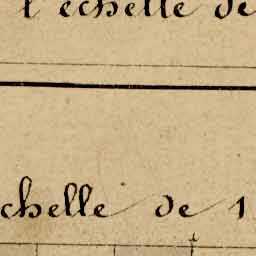 l'échelle de
chelle de 1